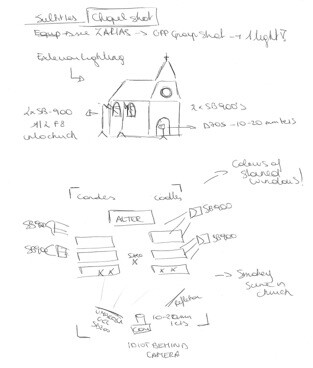 Subtitles Chapel shot
Equip-ime 7 ALIAS -> OPP Group Shot -> 1 light?
Exterior lighting
2x SB-900
@1/2 F8
into church
2x SB-900's
D70S -10-20 meters
Colours of
stained
windows!
Candles
Candles
ALTER
SB900
SB900
SB900
SB900
X
X X
X X
-> Smokey
scene in
church
reflection
UMBRELLA
SB800
IDIOT BEHIND
CAMERA